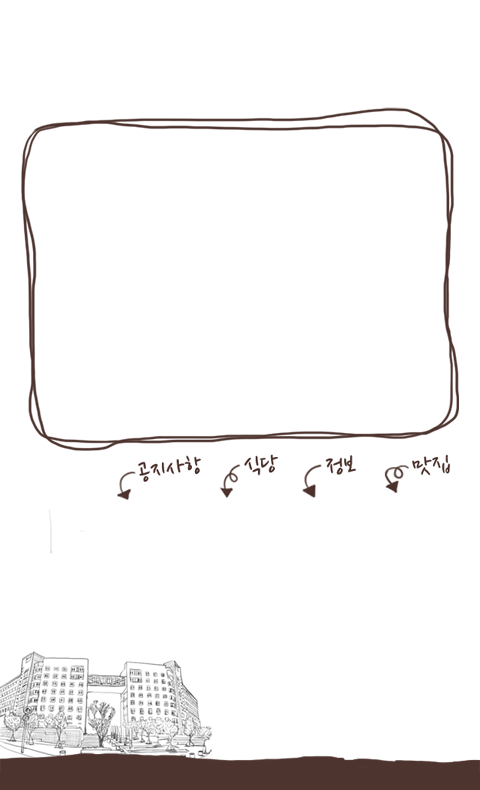 공지사항 식당 정보 맛집